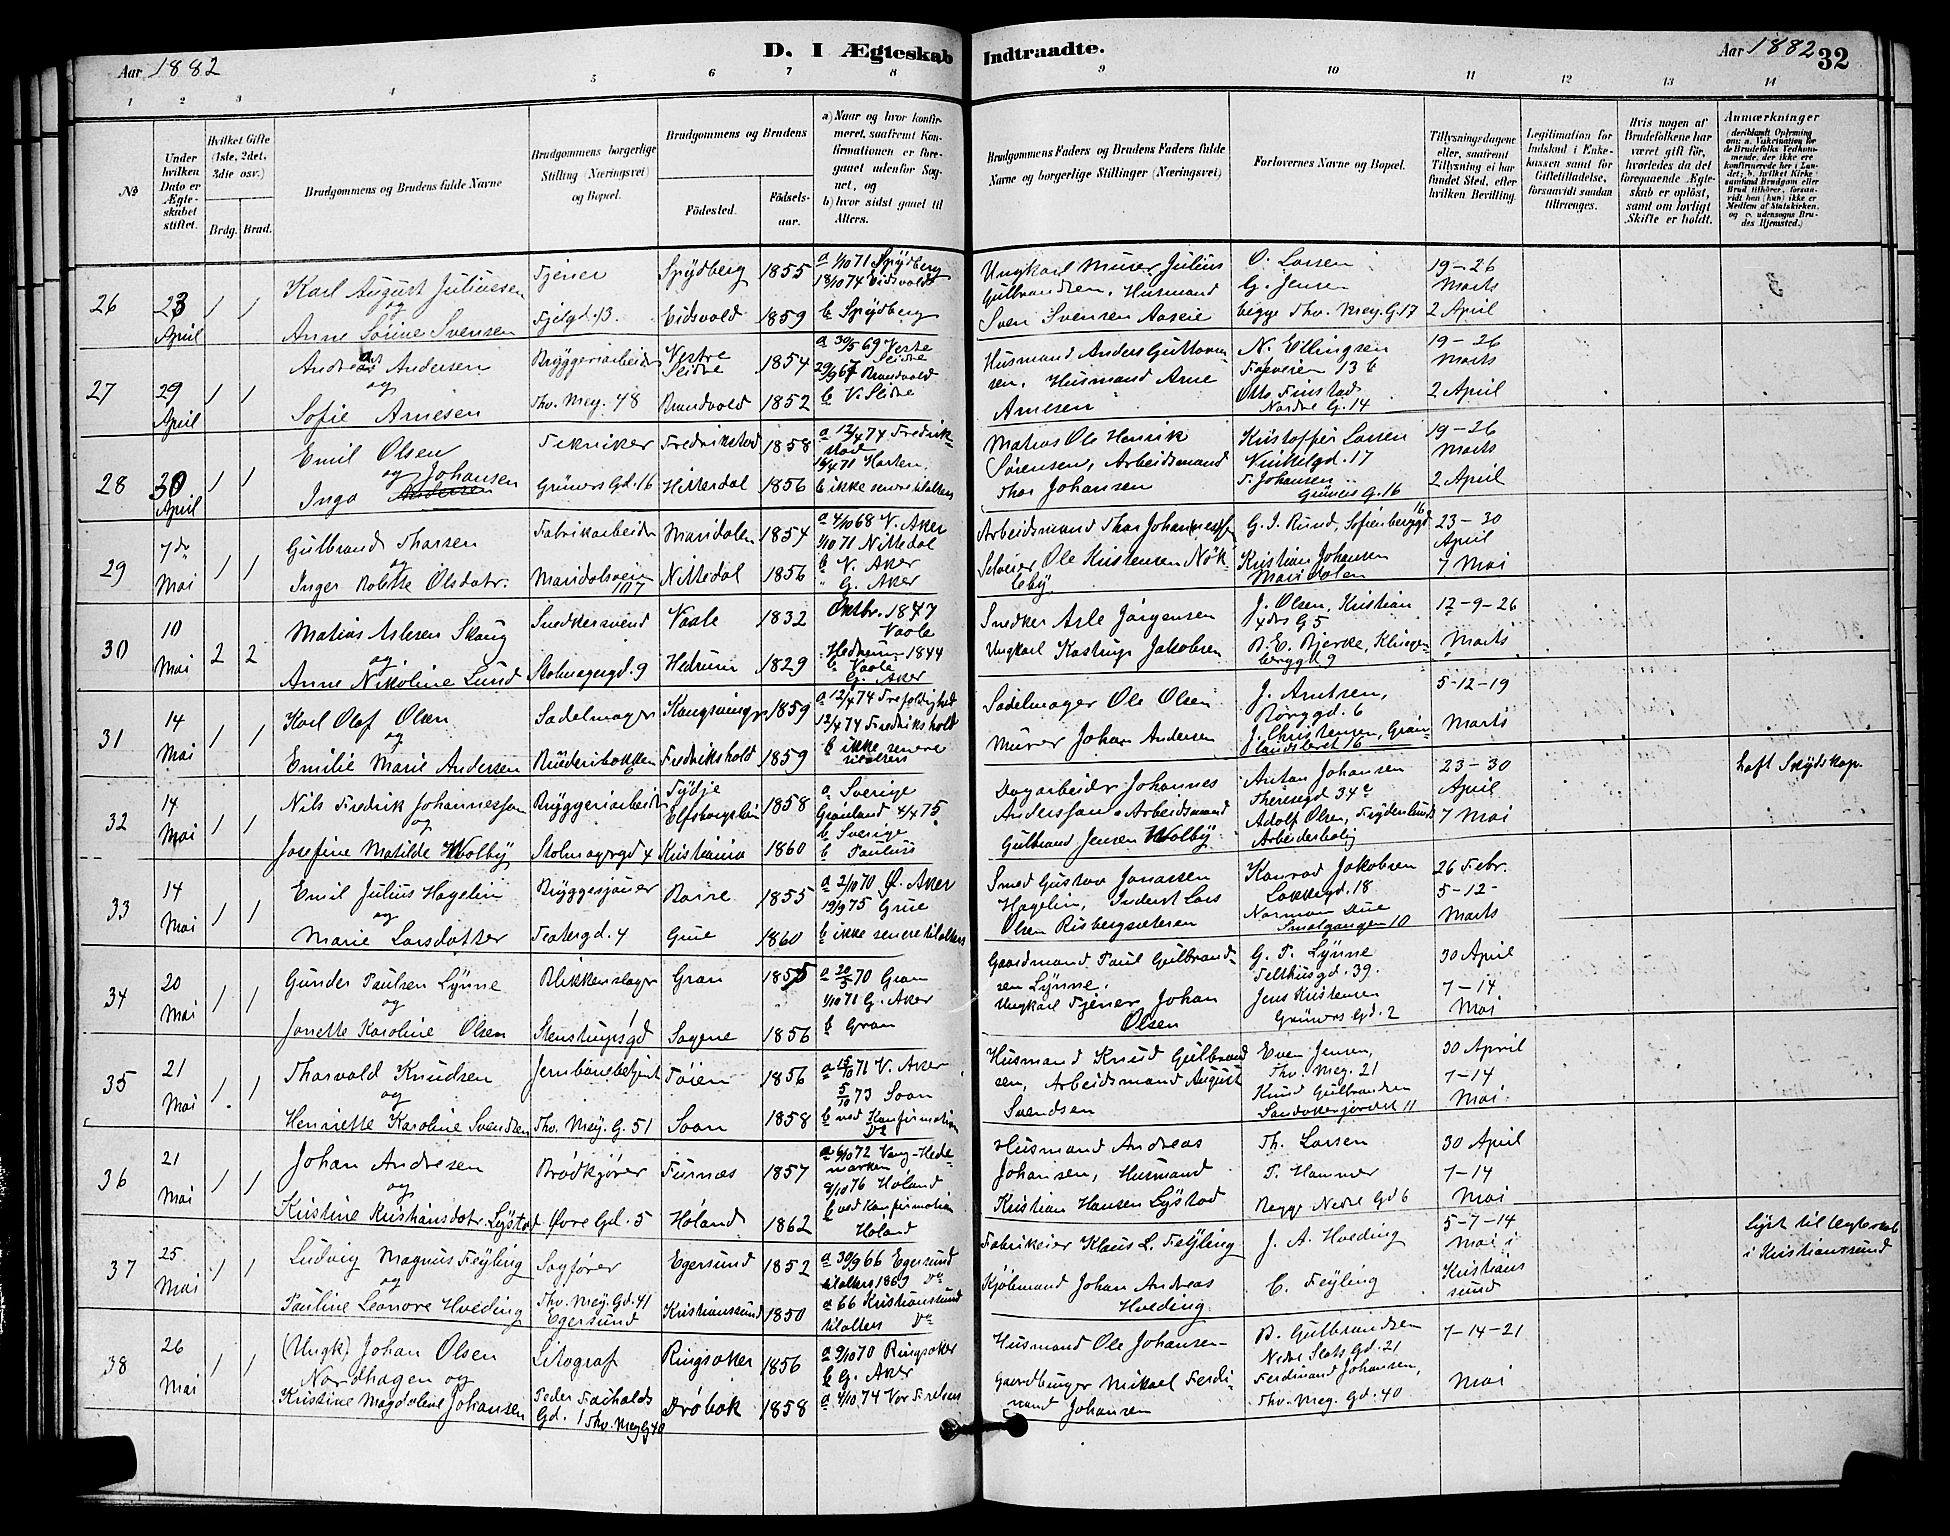 Aar 1882
D. I Ægteskab Indtraadte.
Aar 1882 32
1 2 3 4 5 6 7 8 9 10 11 12 13 14
No
Under hvilken Dato er Ægteskabet stiftet.
Hvilket Gifte (1ste, 2det, 3die osv.)
Brdg. Brud.
Brudgommens og Brudens fulde Navne
Brudgommens borgerlige Stilling (Næringsvei) og Bopæl.
Brudgommens og Brudens
Födested.
Födsels-aar.
a) Naar og hvor konfirmeret, saafremt Konfirmationen er foregaaet udenfor Sognet, og
b) hvor sidst gaaet til Alters.
Brudgommens Faders og Brudens Faders fulde Navne og borgerlige Stillinger (Næringsvei)
Forlovernes Navne og Bopæl.
Tillysningsdagene eller, saafremt Tillysning ei har fundet Sted, efter hvilken Bevilling.
Legitimation for Indskud i Enkekassen samt for Giftetilladelse, forsaavidt saadan tiltrænges.
Hvis nogen af Brudefolkene har været gift før, hvorledes da det foregaaende Ægteskab er oplöst, samt om lovligt Skifte er holdt.
Anmærkninger
26
23 April
1 1
Karl August Juliussen
og
Anne Sörine Svensen
Tjener
Spydberg 1855
Eidsvold 1859
a 1/10 71 Spydberg
18/10 74 Eidsvold
b Spydberg
Ungkarl Murer Julius
Gulbrandsen, Husmand
Sven Svensen Aaseie
O. Larsen
G. Jensen
begge Thv. Mey. G. 17
19-26
Marts
2 April
27
29 April
1 1
Andreas Andersen
og
Sofie Arnesen
Bryggeriarbeider
Thv. Mey. 48
Vestre Slidre 1854
Brandvold 1852
a 30/5 69 Vestre Slidre
29/9 67 Brandvold
b V. Slidre
Husmand Anders Guttorm-
sen, Husmand Arne
Arnesen
N. Ellingsen
Fosveien 13 b
Otto Finstad
Nordre G. 14
19-26
Marts
2 April
28
30 April
1 1
Emil Olsen
og Johansen
Inga
Tekniker
Grüners Gd. 16
Fredrikstad 1858
Hitterdal 1856
a 12/4 74 Fredrik-
stad
16/4 71 Horten
b ikke senere tilalters
Mathias Ole Henrik
Sørensen, Arbeidsmand
Thor Johansen
Kristoffer Larsen
Vinkelgd. 17
F. Johansen
Grüners G. 16
19-26
Marts
2 April
29
7de Mai
1 1
Gulbrand Thorsen
og
Inger Bolette Olsdatr.
Fabrikarbeider
Maridalsveien 107
Maridalen 1854
Nittedal 1856
a 4/10 68 V. Aker
1/10 71 Nittedal
b V. Aker
" G. Aker
Arbeidsmand Thor Johannessen
Ole Kristensen Nök-
leby
G. I. Rund, Sofienberggd 16
Kristian Johansen
Maridalen
23-30
April
7 Mai
30
10 Mai
2 2
Matias Aslesen Skaug
og
Anne Nikoline Lund
Snedkersvend
Stolmagergd. 9
Vaale 1832
Hedrum 1829
Oktbr. 1847
Vaale
Hedrum 1844
b Vaale
G. Aker
Snedker Asle Jörgensen
Ungkarl Kastrup Jakobsen
J. Olsen, Kristian
4des G 5
B. E. Bjerke, Klinge-
berggd 9
12-9-26
Marts
31
14 Mai
1 1
Karl Olaf Olsen
og
Emilie Marie Andersen
Sadelmager
Kongsvinger 1859
Fredrikshald 1859
a 12/4 74 Trefoldighed
12/4 74 Fredrikshald
b ikke senere
tilalters
Sadelmager Ole Olsen
Murer Johan Andersen
J. Arntsen,
Borggd. 6
J. Christensen, Grøn-
landsleret 16
5-12-19
Marts
32
14 Mai
1 1
Nils Fredrik Johannesson
og
Josefine Matilde Wolby
Bryggeriarbeider
Stolmagergd 4
Elfsborgslän 1858
Kristiania 1860
a Sverige
Grønland 4/4 75
b Sverige
b Paulus
Dagarbeider Johannes
Andersson. Arbeidsmand
Gulbrand Jensen Wolby
Anton Johansen
Theresegd 34c
Adolf Olsen, Frydenlunds
Arbeiderbolig
23-30
April
7 Mai
haft Skydskop.
33
14 Mai
1 1
Emil Julius Hagelin
og
Marie Larsdatter
Bryggesjouer
Teatergd. 4
1855
Grue 1860
a 2/10 70 Ø. Aker
19/9 75 Grue
b ikke senere tilalters
Smed Gustav Jonassen
Hagelin, Inderst Lars
Olsen Risbergsæteren
Konrad Jakobsen
Lakkegd. 18
Norman Due
Smalgangen 10
26 Febr.
5-12-
Marts
34
20 Mai
1 1
Gunder Paulsen Lynne
og
Jonette Karoline Olsen
Blikkenslager
Stenstrupsgd 1
Gran 1855
Sagene 1856
a 20/5 70 Gran
1/10 71 G. Aker
b Gran
Gaardmand Paul Gulbrand-
sen Lynne.
Ungkarl Tjener Johan
Olsen
G. P. Lynne
Telthusgd. 39.
Jens Kristensen
Grüners Gd. 2
30 April
7-14
Mai
35
21 Mai
1 1
Thorvald Knudsen
og
Henriette Karoline Svendsen
Jernbanebetjent
Thv. Mey. G. 51
Töien 1856
Soon 1858
a 15/10 71 V. Aker
5/10 73 Soon
b ved Konfirmation
Do
Husmand Knud Gulbrand
sen, Arbeidsmand August
Svendsen
Even Jensen,
Thv. Mey. 21
Knud Gulbrandsen
Sandakerjordet 11
30 April
7-14
Mai
36
21 Mai
1 1
Johan Andresen
og
Kristine Kristiansdatr. Lystad
Brödkjører
Øvre Gd. 5
Furnæs 1857
Høland 1862
a 6/10 72 Vang-Hede-
marken
8/10 76 Høland
b ved Konfirmation
Høland
Husmand Andreas
Johansen, Husmand
Kristian Hansen Lystad
Th. Larsen
T. Hammer
Begge Nedre Gd 6
30 April
7-14
Mai
37
25 Mai
1 1
Ludvig Magnus Feyling
og
Pauline Leonore Hveding
Sagfører
Thv. Mey. Gd. 41
Egersund
Egersund 1852
Kristianssund 1850
a 30/9 66 Egersund
tilalters 1869 Do
a 66 Kristianssund
tilalters Do
Fabrikeier Klaus L. Feyling
Kjøbmand Johan Andreas
Hveding
J. A. Hveding
C. Feyling
5-7-14
Mai i
Kristians
sund
lyst til Ægteskab
i Kristianssund
38
26 Mai
1 1
(Ungk) Johan Olsen
Nordhagen og
Kristine Magdalene Johansen
Litograf
Gd. 1 Thv. Mey G 40
Ringsaker 1856
Dröbak 1858
a 9/10 70 Ringsaker
b G. Aker
a 4/10 74 Vor Frelsers
Husmand Ole Johansen
Gaardbruger Mikael Ferdi-
nand Johansen
B. Gulbrandsen
Nedre Slots Gd. 21
Ferdinand Johansen,
Thv. Mey. Gd. 40
7-14-21
Mai